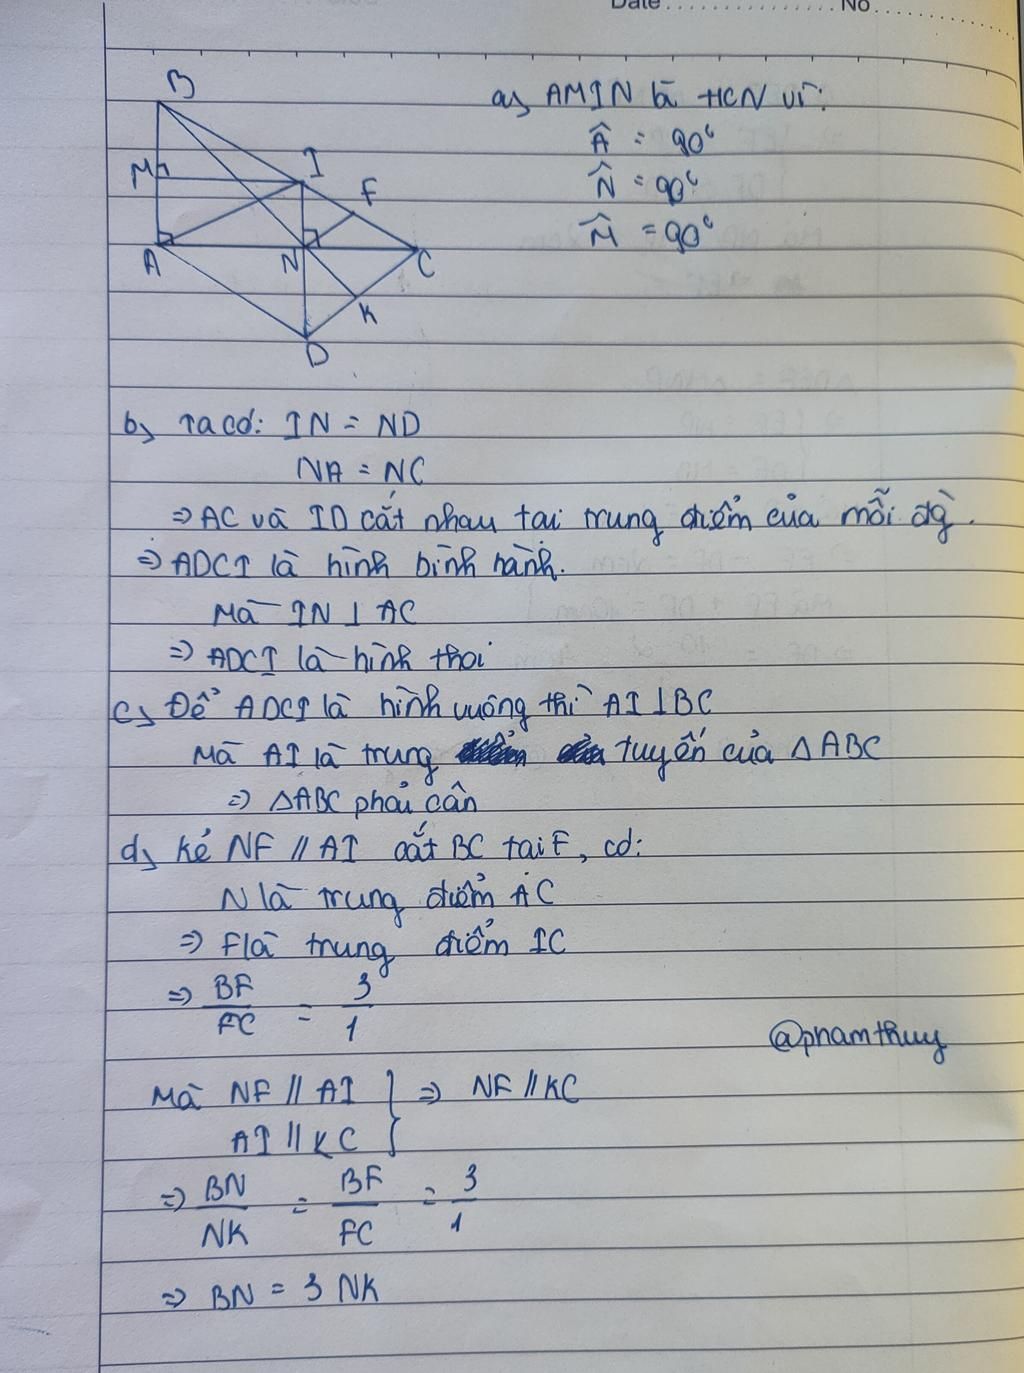 Date ................ No ................
B
M
I
F
A
N
C
K
D
a, AMIN là HCN vì:
Â = 90°
N̂ = 90°
M̂ = 90°
b, Ta có: IN = ND
NA = NC
=> AC và ID cắt nhau tại trung điểm của mỗi đg.
=> ADCI là hình bình hành.
Mà IN ⊥ AC
=> ADCI là hình thoi
c, Để ADCI là hình vuông thì AI ⊥ BC
Mà AI là trung tuyến của △ABC
=> △ABC phải cân
d, Kẻ NF // AI cắt BC tại F, có:
N là trung điểm AC
=> F là trung điểm IC
=> BF/FC = 3/1
@phamthuy
Mà NF // AI } => NF // KC
AI // KC
=> BN/NK = BF/FC = 3/1
=> BN = 3 NK